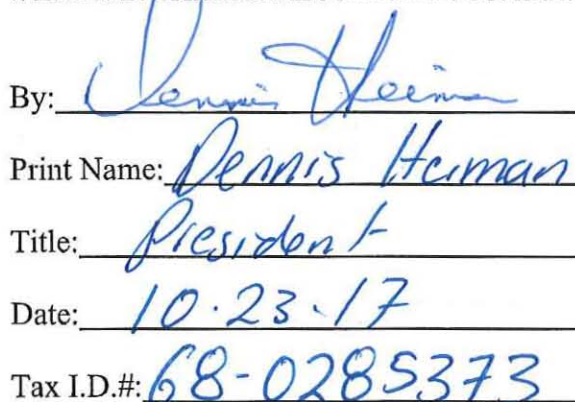 By: Dennis Heiman
Print Name: Dennis Heiman
Title: President
Date: 10·23·17
Tax I.D.#: 68-0285373